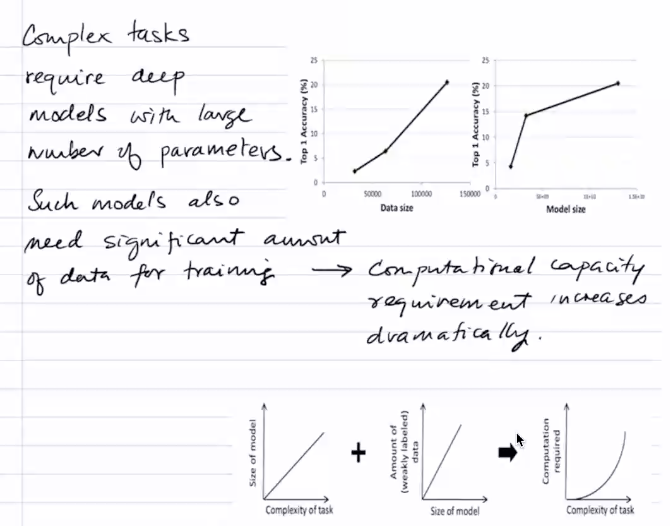 Complex tasks
require deep
models with large
number of parameters.
Such models also
need significant amount
of data for training → Computational capacity
requirement increases
dramatically.
Top 1 Accuracy (%)
25
20
15
10
5
0
0 50000 100000 150000
Data size
Top 1 Accuracy (%)
25
20
15
10
5
0
Model size
Size of model
Complexity of task
+
Amount of
(weakly labeled)
data
Size of model
Computation
required
Complexity of task